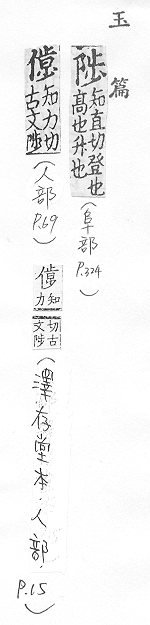 玉篇
陟 知直切登也
高也升也
(阜部 P.324)
知力切
古文陟
(人部 P.69)
知
力
切古
文陟
(澤存堂本.人部. P.15)